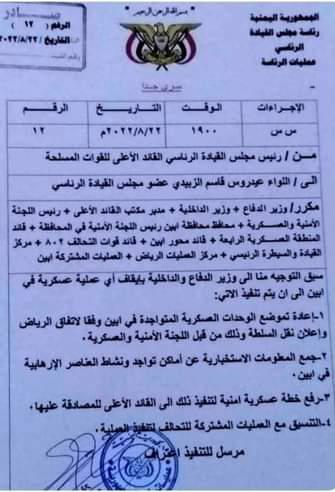 بسم الله الرحمن الرحيم
الجمهورية اليمنية
رئاسة مجلس القيادة
الرئاسي
عمليات الرئاسة
صادر
الرقم ( ١٢ )
التاريخ / ٢٠٢٢/٨/٢٢
سري جدا
الإجراءات الوقت التاريخ الرقم
س س ١٩٠٠ ٢٠٢٢/٨/٢٢م ١٢
من / رئيس مجلس القيادة الرئاسي القائد الأعلى للقوات المسلحة
الى / اللواء عيدروس قاسم الزبيدي عضو مجلس القيادة الرئاسي
مكرر/ وزير الدفاع + وزير الداخلية + مدير مكتب القائد الأعلى + رئيس اللجنة
الأمنية والعسكرية + محافظ محافظة ابين رئيس اللجنة الأمنية في المحافظة + قائد
المنطقة العسكرية الرابعة + قائد محور ابين + قائد قوات التحالف ٨٠٢ + مركز
القيادة والسيطرة الرئيسي + مركز العمليات الرياض + العمليات المشتركة ابين
سبق التوجيه منا الى وزير الدفاع والداخلية بإيقاف أي عملية عسكرية في
ابين الى ان يتم تنفيذ الاتي:
١-إعادة تموضع الوحدات العسكرية المتواجدة في ابين وفقا لاتفاق الرياض
وإعلان نقل السلطة وذلك من قبل اللجنة الأمنية والعسكرية.
٢-جمع المعلومات الاستخبارية عن أماكن تواجد ونشاط العناصر الإرهابية
في ابين.
٣-رفع خطة عسكرية امنية لتنفيذ ذلك الى القائد الأعلى للمصادقة عليها.
٤-التنسيق مع العمليات المشتركة للتحالف لتنفيذ العملية.
مرسل للتنفيذ اعتراف